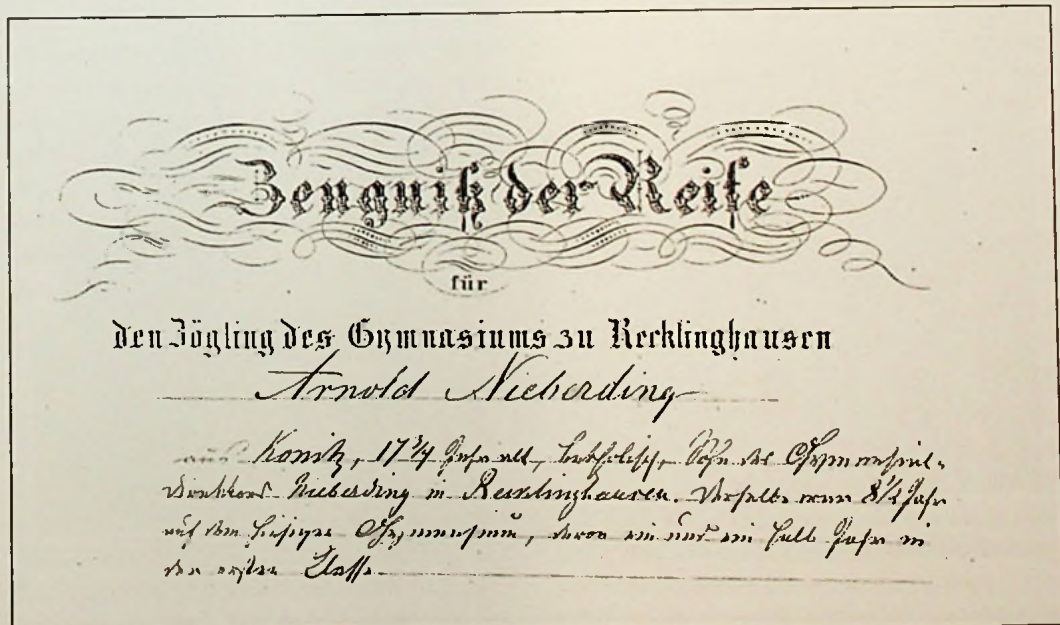 Zeugniß der Reife
für
den Zögling des Gymnasiums zu Recklinghausen
Arnold Nieberding
aus Konitz, 17 3/4 Jahr alt, katholisch, Sohn des Gymnasial-
direktors Nieberding in Recklinghausen. Derselbe war 8 1/2 Jahr
auf dem hiesigen Gymnasium, davon ein und ein halb Jahr in
der ersten Classe